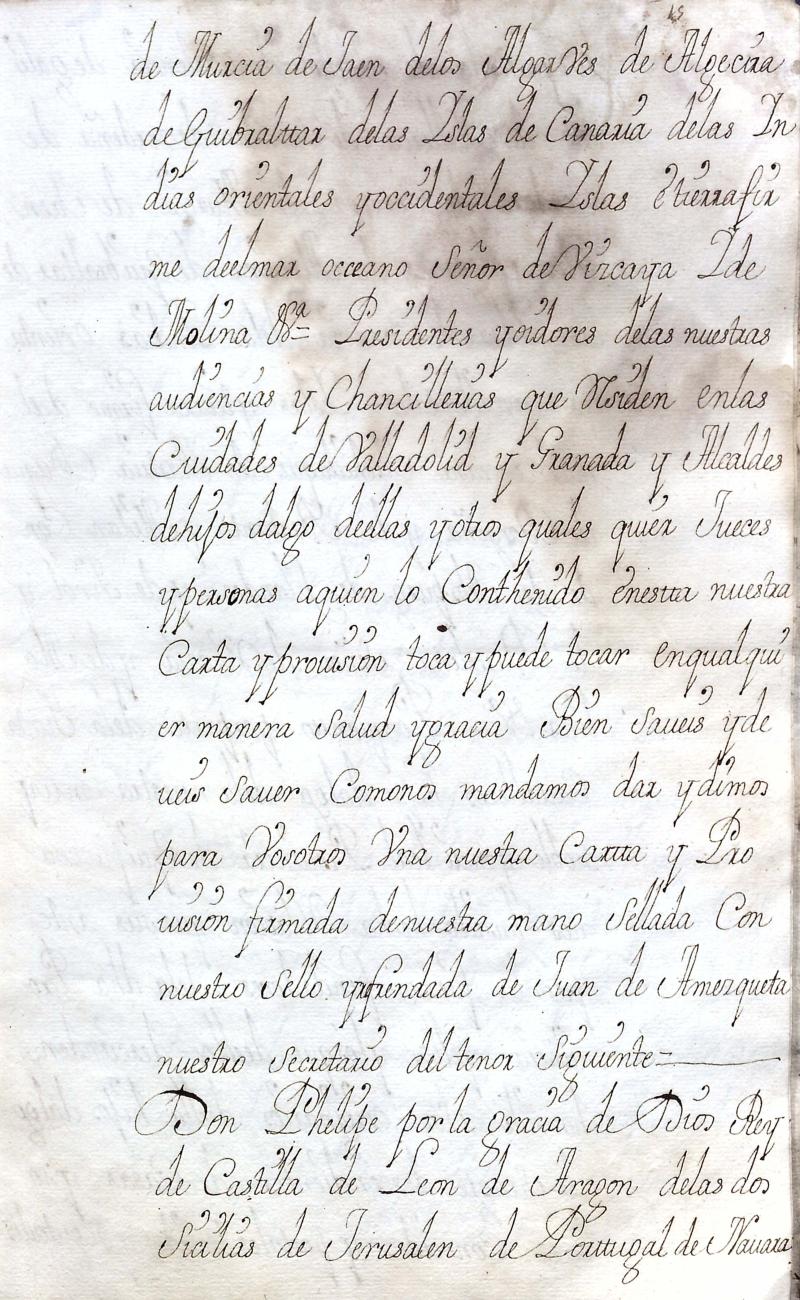 15
de Murcia de Jaen delos AlgarVes de Algecira
de Guibralttar delas Yslas de Canaria delas Yn
dias orientales yoccidentales Yslas Etierrafir
me deelmar occeano Señor de Vizcaya Yde
Molina &ª Presidentes yoidores delas nuestras
audiencias y Chancillerias que Rsiden enlas
Ciudades de Valladolid y Granada y Alcaldes
dehijos dalgo deellas yotros quales quier Jueces
ypersonas aquien lo Conthenido enestta nuestra
Carta yprouision toca ypuede tocar enqualqui
er manera salud ygracia Bien saueis yde
ueis sauer Comonos mandamos dar ydimos
para Vosotros Vna nuestra Cartta y Pro
uision firmada denuestra mano sellada Con
nuestro sello yrefrendada de Juan de Amezqueta
nuestro secretario del tenor siguiente=
Don Phelipe por la gracia de Dios Rey
de Castilla de Leon de Aragon delas dos
Sicilias de Jerusalen de Porttugal de Nauara